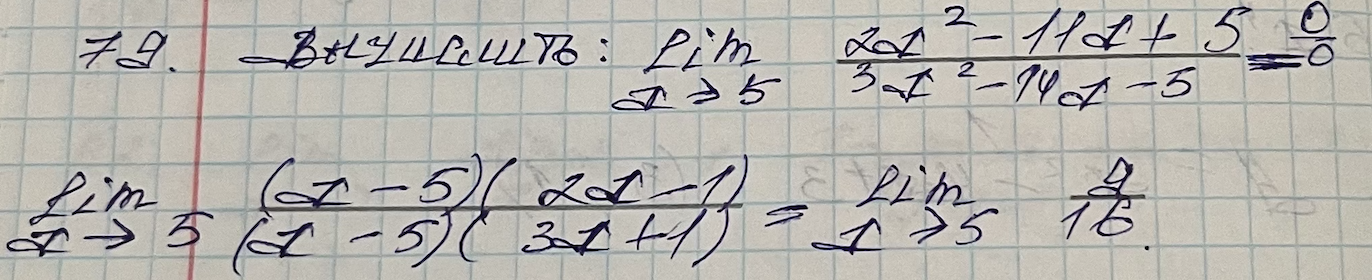 79. Вычислить: lim x→5 (2x² - 11x + 5)/(3x² - 14x - 5) = 0/0
lim x→5 ((x - 5)(2x - 1))/((x - 5)(3x + 1)) = lim x→5 9/16.